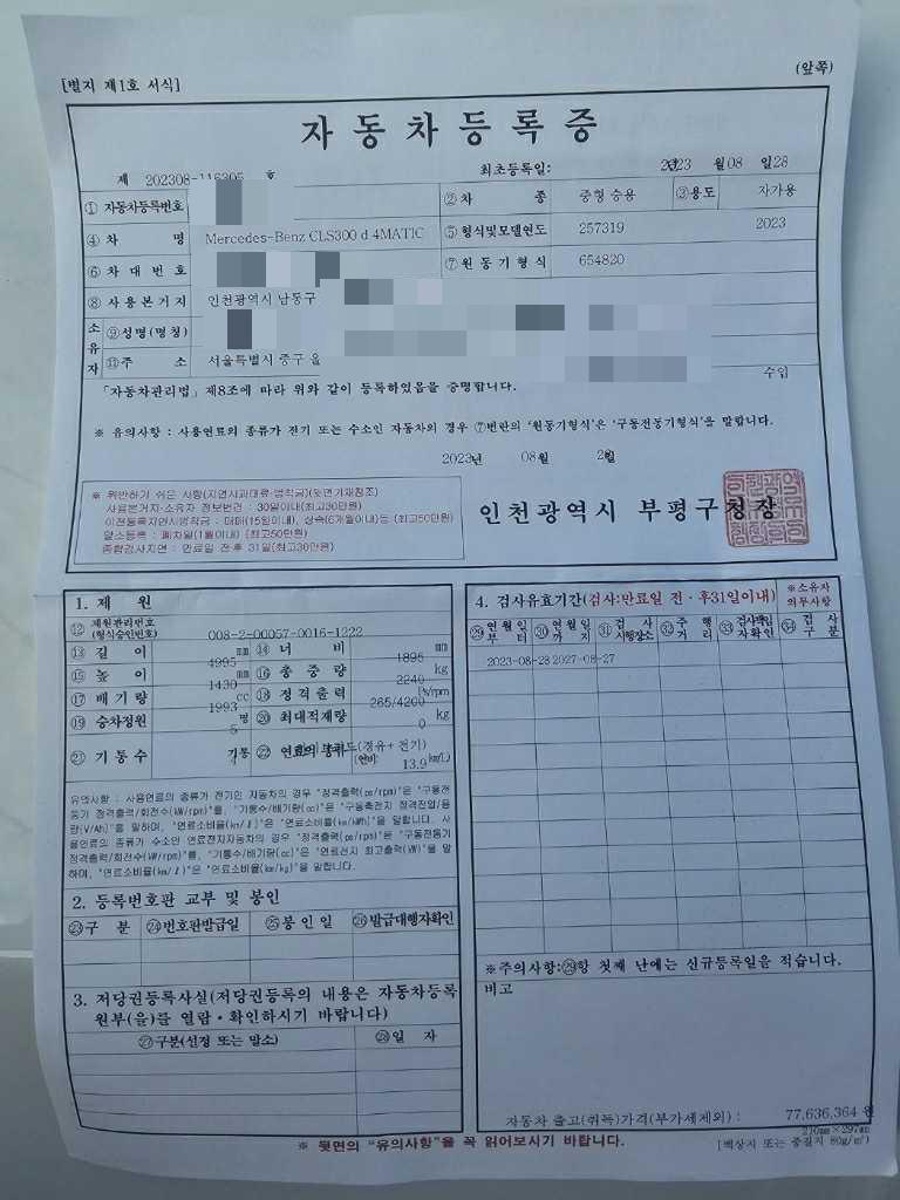 [별지 제1호 서식]
(앞쪽)
자동차등록증
제 202308- 호
최초등록일: 2023 년 월08 일28
① 자동차등록번호
② 차 종 중형 승용 ③용도 자가용
④ 차 명 Mercedes-Benz CLS300 d 4MATIC
⑤ 형식및모델연도 257319 2023
⑥ 차대번호
⑦ 원동기형식 654820
⑧ 사용본거지 인천광역시 남동구
소유자
⑨성명(명칭)
⑪주 소 서울특별시 중구 을
수입
「자동차관리법」 제8조에 따라 위와 같이 등록하였음을 증명합니다.
※ 유의사항 : 사용연료의 종류가 전기 또는 수소인 자동차의 경우 ⑦번란의 '원동기형식'은 '구동전동기형식'을 말합니다.
2023년 08월 2 일
※ 위반하기 쉬운 사항(지연사과태료·범칙금)(뒷면기재참조)
사용본거지·소유자 정보변경 : 30일이내(최고30만원)
이전등록지연시범칙금 : 매매(15일이내), 상속(6개월이내)등 (최고50만원)
말소등록 : 폐차일(1월이내) (최고50만원)
종합검사지연 : 만료일 전·후 31일(최고30만원)
인천광역시 부평구청장
1. 제 원
⑫ 제원관리번호
(형식승인번호) 008-2-00057-0016-1222
⑬ 길 이 4995 mm ⑭ 너 비 1895 mm
⑮ 높 이 1430 mm ⑯ 총 중 량 2240 kg
⑰ 배 기 량 1993 cc ⑱ 정격출력 265/4200 /rpm
⑲ 승차정원 5 명 ⑳ 최대적재량 0 kg
㉑ 기 통 수 기통 ㉒ 연료의 종류 (경유+전기)
(연비: 13.9 km/L)
유의사항 : 사용연료의 종류가 전기인 자동차의 경우 "정격출력(ps/rpm)"은 "구동전
동기 정격출력/회전수(kW/rpm)"를, "기통수/배기량(cc)"은 "구동축전지 정격전압/용
량(V/Ah)"를 말하며, "연료소비율(km/ℓ)"은 "연료소비율(km/kWh)"을 말합니다. 사
용연료의 종류가 수소인 연료전지자동차의 경우 "정격출력(ps/rpm)"은 "구동전동기
정격출력/회전수(kW/rpm)"를, "기통수/배기량(cc)"은 "연료전지 최고출력(kW)"을 말
하며, "연료소비율(km/ℓ)"은 "연료소비율(km/kg)"을 말합니다.
2. 등록번호판 교부 및 봉인
㉓구 분 ㉔번호판발급일 ㉕봉 인 일 ㉖발급대행자확인
3. 저당권등록사실(저당권등록의 내용은 자동차등록
원부(을)를 열람·확인하시기 바랍니다)
㉗구분(설정 또는 말소) ㉘일 자
4. 검사유효기간(검사:만료일 전·후31일이내)
※소유자
의무사항
㉙연월일부터 ㉚연월일까지 ㉛검사시행장소 ㉜주행거리 ㉝검사책임자확인 ㉞검사구분
2023-08-28 2027-08-27
※주의사항:㉙항 첫째 난에는 신규등록일을 적습니다.
비고
자동차 출고(취득)가격(부가세제외) : 77,636,364 원
210㎜×297㎜
[백상지 또는 중질지 80g/㎡)
※ 뒷면의 "유의사항"을 꼭 읽어보시기 바랍니다.